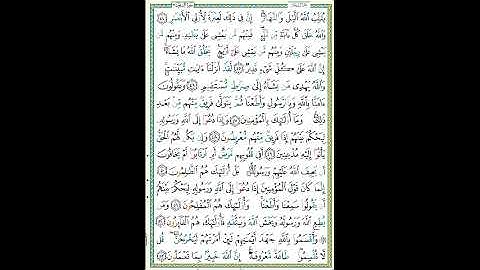 يُقَلِّبُ ٱللَّهُ ٱلَّيۡلَ وَٱلنَّهَارَۚ إِنَّ فِي ذَٰلِكَ لَعِبۡرَةٗ لِّأُوْلِي ٱلۡأَبۡصَٰرِ ٤٤
وَٱللَّهُ خَلَقَ كُلَّ دَآبَّةٖ مِّن مَّآءٖۖ فَمِنۡهُم مَّن يَمۡشِي عَلَىٰ بَطۡنِهِۦ وَمِنۡهُم مَّن
يَمۡشِي عَلَىٰ رِجۡلَيۡنِ وَمِنۡهُم مَّن يَمۡشِي عَلَىٰٓ أَرۡبَعٖۚ يَخۡلُقُ ٱللَّهُ مَا يَشَآءُۚ
إِنَّ ٱللَّهَ عَلَىٰ كُلِّ شَيۡءٖ قَدِيرٞ ٤٥ لَّقَدۡ أَنزَلۡنَآ ءَايَٰتٖ مُّبَيِّنَٰتٖۚ
وَٱللَّهُ يَهۡدِي مَن يَشَآءُ إِلَىٰ صِرَٰطٖ مُّسۡتَقِيمٖ ٤٦ وَيَقُولُونَ
ءَامَنَّا بِٱللَّهِ وَبِٱلرَّسُولِ وَأَطَعۡنَا ثُمَّ يَتَوَلَّىٰ فَرِيقٞ مِّنۡهُم مِّنۢ بَعۡدِ
ذَٰلِكَۚ وَمَآ أُوْلَٰٓئِكَ بِٱلۡمُؤۡمِنِينَ ٤٧ وَإِذَا دُعُوٓاْ إِلَى ٱللَّهِ وَرَسُولِهِۦ
لِيَحۡكُمَ بَيۡنَهُمۡ إِذَا فَرِيقٞ مِّنۡهُم مُّعۡرِضُونَ ٤٨ وَإِن يَكُن لَّهُمُ ٱلۡحَقُّ
يَأۡتُوٓاْ إِلَيۡهِ مُذۡعِنِينَ ٤٩ أَفِي قُلُوبِهِم مَّرَضٌ أَمِ ٱرۡتَابُوٓاْ أَمۡ يَخَافُونَ
أَن يَحِيفَ ٱللَّهُ عَلَيۡهِمۡ وَرَسُولُهُۥۚ بَلۡ أُوْلَٰٓئِكَ هُمُ ٱلظَّٰلِمُونَ ٥٠
إِنَّمَا كَانَ قَوۡلَ ٱلۡمُؤۡمِنِينَ إِذَا دُعُوٓاْ إِلَى ٱللَّهِ وَرَسُولِهِۦ لِيَحۡكُمَ بَيۡنَهُمۡ
أَن يَقُولُواْ سَمِعۡنَا وَأَطَعۡنَاۚ وَأُوْلَٰٓئِكَ هُمُ ٱلۡمُفۡلِحُونَ ٥١ وَمَن
يُطِعِ ٱللَّهَ وَرَسُولَهُۥ وَيَخۡشَ ٱللَّهَ وَيَتَّقۡهِ فَأُوْلَٰٓئِكَ هُمُ ٱلۡفَآئِزُونَ ٥٢
وَأَقۡسَمُواْ بِٱللَّهِ جَهۡدَ أَيۡمَٰنِهِمۡ لَئِنۡ أَمَرۡتَهُمۡ لَيَخۡرُجُنَّۖ قُل
لَّا تُقۡسِمُواْۖ طَاعَةٞ مَّعۡرُوفَةٌۚ إِنَّ ٱللَّهَ خَبِيرُۢ بِمَا تَعۡمَلُونَ ٥٣